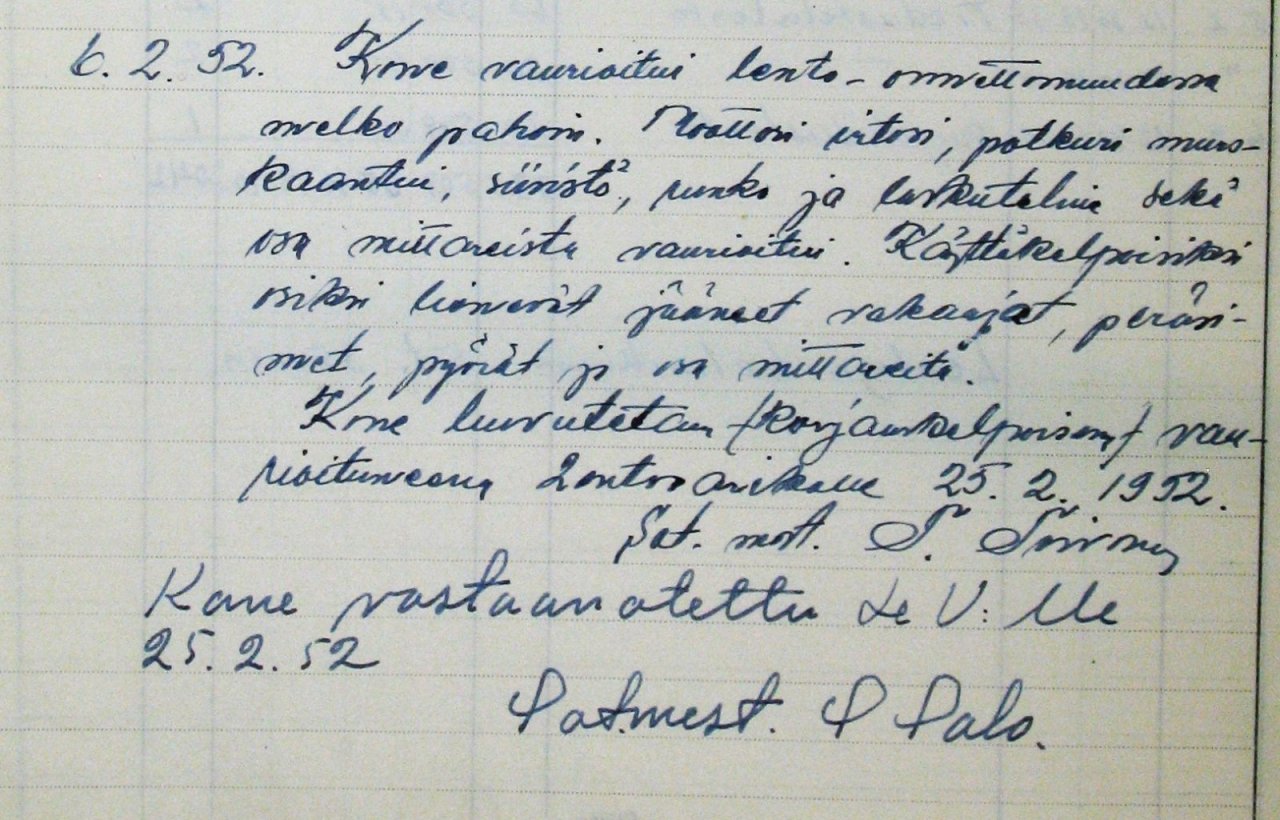 6. 2. 52. Kone vaurioitui lento-onnettomuudessa
melko pahoin. Moottori irtosi, potkuri murs-
kaantui, siivistö, runko ja laskuteline sekä
osa mittareista vaurioitui. Käyttökelpoisiksi
osiksi lienevät jääneet vakaajat, peräsi-
met, pyörät ja osa mittareita.
Kone luovutetaan /korjauskelpoisena/ vau-
rioituneena Lentovarikolle 25. 2. 1952.
Sot. mest. T.
Kone vastaanotettu Le V: lle
25. 2. 52
Sot.mest. P Palo.